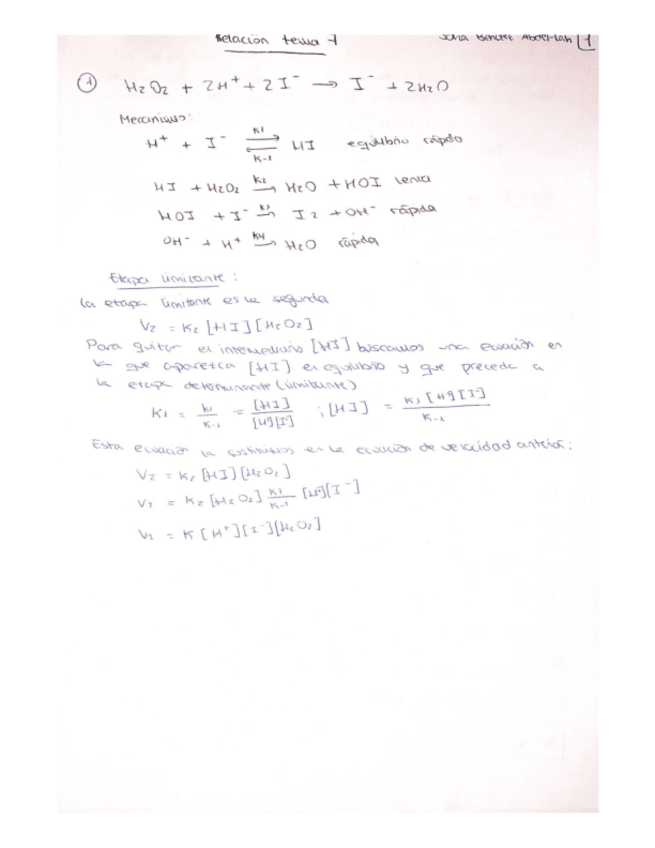 Relación tema 7 1
① H₂O₂ + 2H⁺ + 2I⁻ → I⁻ + 2H₂O
Mecanismo:
H⁺ + I⁻ ⇌ HI equilibrio rápido
K1
K-1
HI + H₂O₂ →K2 H₂O + HOI lenta
HOI + I⁻ →K3 I₂ + OH⁻ rápida
OH⁻ + H⁺ →K4 H₂O rápida
Etapa limitante:
La etapa limitante es la segunda
V₂ = K₂ [HI][H₂O₂]
Para quitar el intermediario [HI] buscamos una ecuación en
la que aparezca [HI] en equilibrio y que preceda a
la etapa determinante (limitante)
K₁ = k₁/K₋₁ = [HI]/[H⁺][I⁻] ; [HI] = K₁[H⁺][I⁻]/K₋₁
Esta ecuación la sustituimos en la ecuación de velocidad anterior:
V₂ = K₂[HI][H₂O₂]
V₂ = K₂[H₂O₂] K₁/K₋₁ [H⁺][I⁻]
V₂ = K[H⁺][I⁻][H₂O₂]